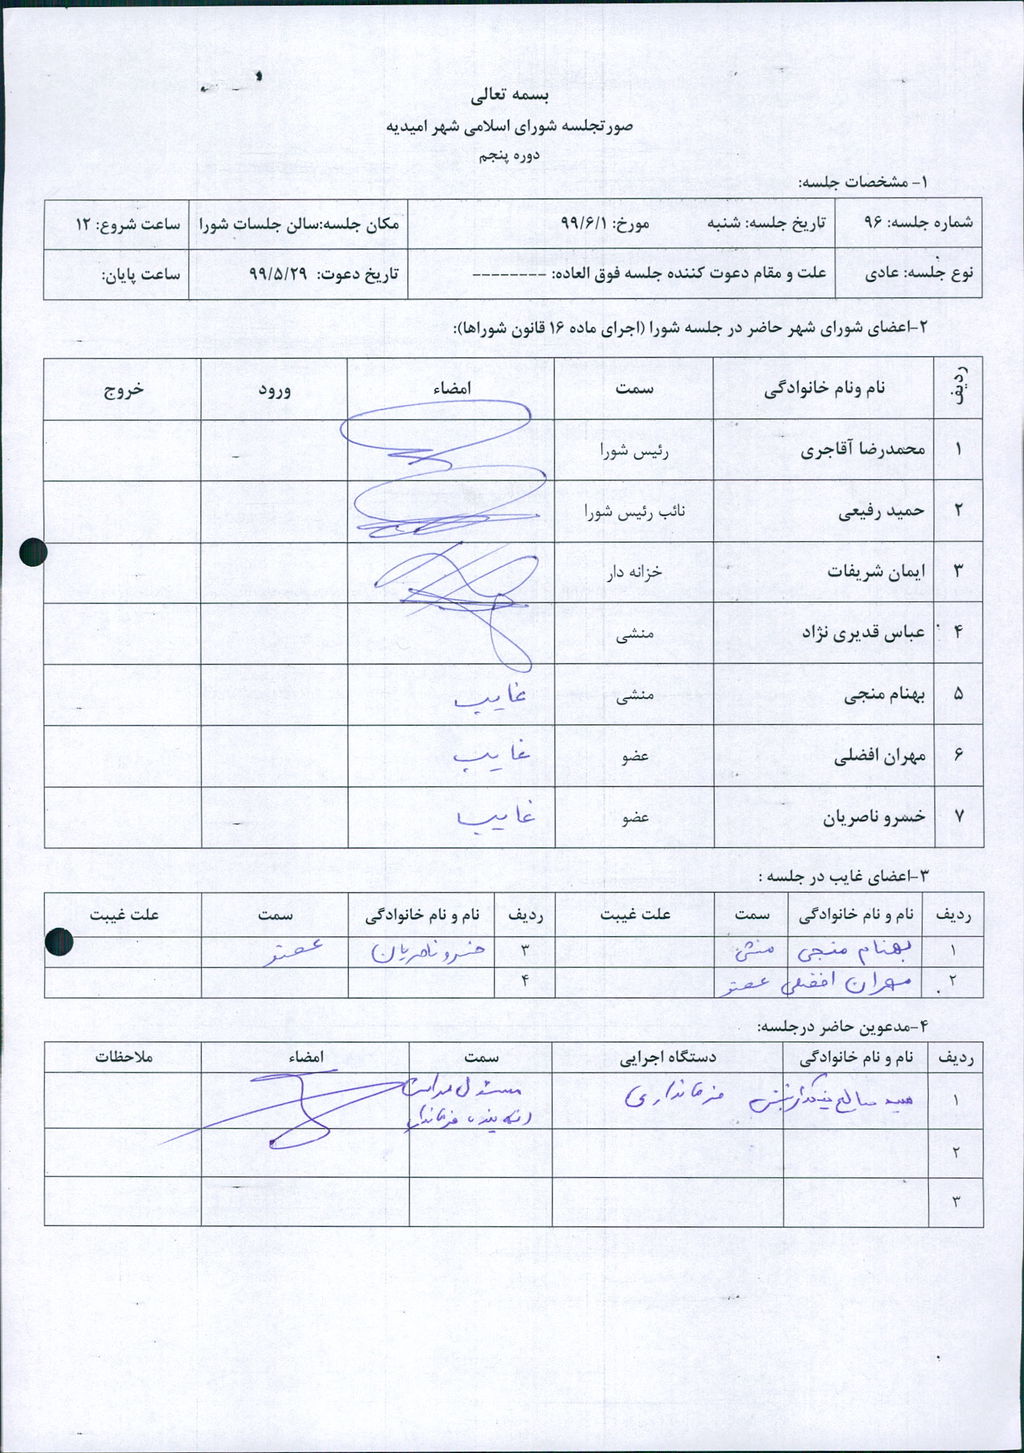 بسمه تعالی
صورتجلسه شورای اسلامی شهر امیدیه
دوره پنجم
۱- مشخصات جلسه:
شماره جلسه: ۹۶ تاریخ جلسه: شنبه مورخ: ۹۹/۶/۱ مکان جلسه:سالن جلسات شورا ساعت شروع: ۱۲
نوع جلسه: عادی علت و مقام دعوت کننده جلسه فوق العاده: -------- تاریخ دعوت: ۹۹/۵/۲۹ ساعت پایان:
۲-اعضای شورای شهر حاضر در جلسه شورا (اجرای ماده ۱۶ قانون شوراها):
ردیف نام ونام خانوادگی سمت امضاء ورود خروج
۱ محمدرضا آقاجری رئیس شورا
۲ حمید رفیعی نائب رئیس شورا
۳ ایمان شریفات خزانه دار
۴ عباس قدیری نژاد منشی
۵ بهنام منجی منشی غایب
۶ مهران افضلی عضو غایب
۷ خسرو ناصریان عضو غایب
۳-اعضای غایب در جلسه :
ردیف نام و نام خانوادگی سمت علت غیبت ردیف نام و نام خانوادگی سمت علت غیبت
۱ بهنام منجی منشی ۳ خسرو ناصریان عضو
۲ مهران افضلی عضو ۴
۴-مدعوین حاضر درجلسه:
ردیف نام و نام خانوادگی دستگاه اجرایی سمت امضاء ملاحظات
۱ صالح فرمانداری مسئول
فرماندار
۲
۳